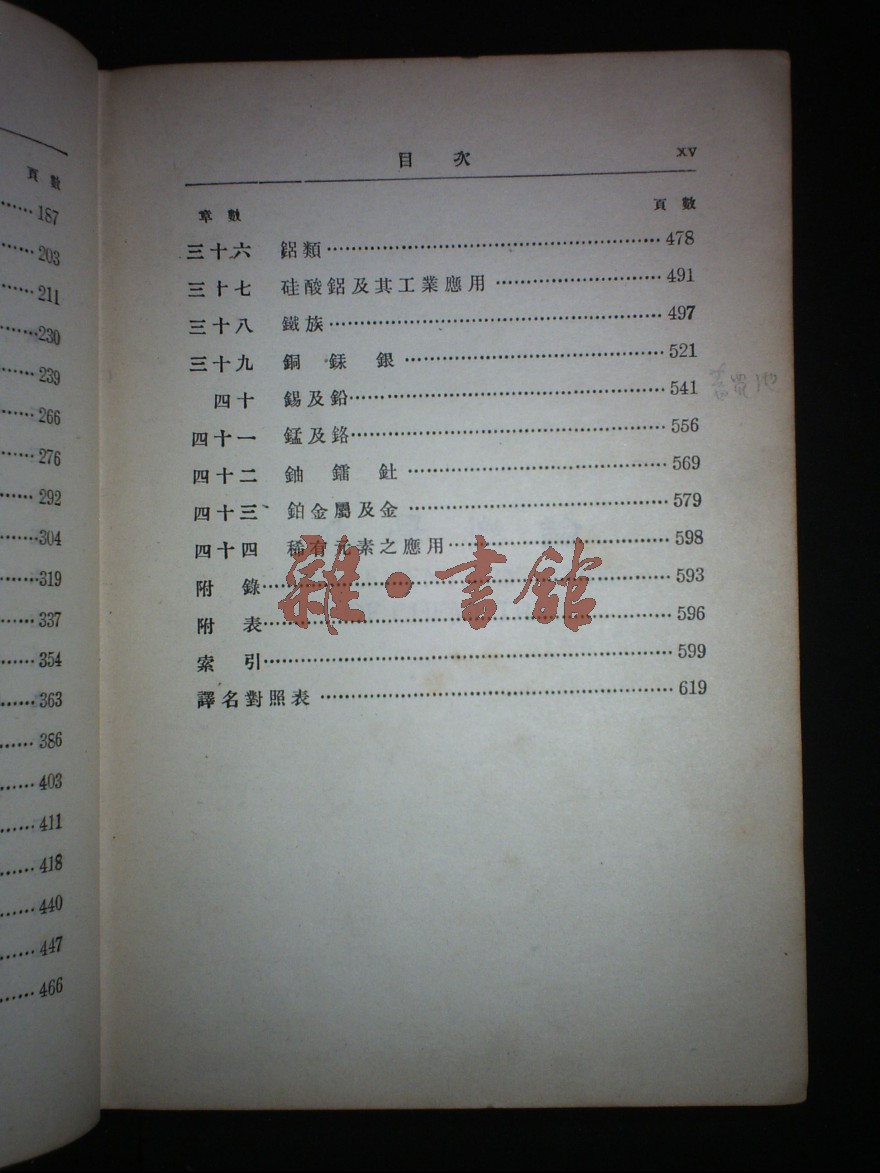 頁數
187
203
211
230
239
266
276
292
304
319
337
354
363
386
403
411
418
440
447
466
目次 xv
章數 頁數
三十六 鋁類 478
三十七 硅酸鋁及其工業應用 491
三十八 鐵族 497
三十九 銅 銾 銀 521
四十 錫及鉛 541
四十一 錳及鉻 556
四十二 鈾 鐳 釷 569
四十三 鉑金屬及金 579
四十四 稀有元素之應用 598
附錄 593
附表 596
索引 599
譯名對照表 619
雜·書館